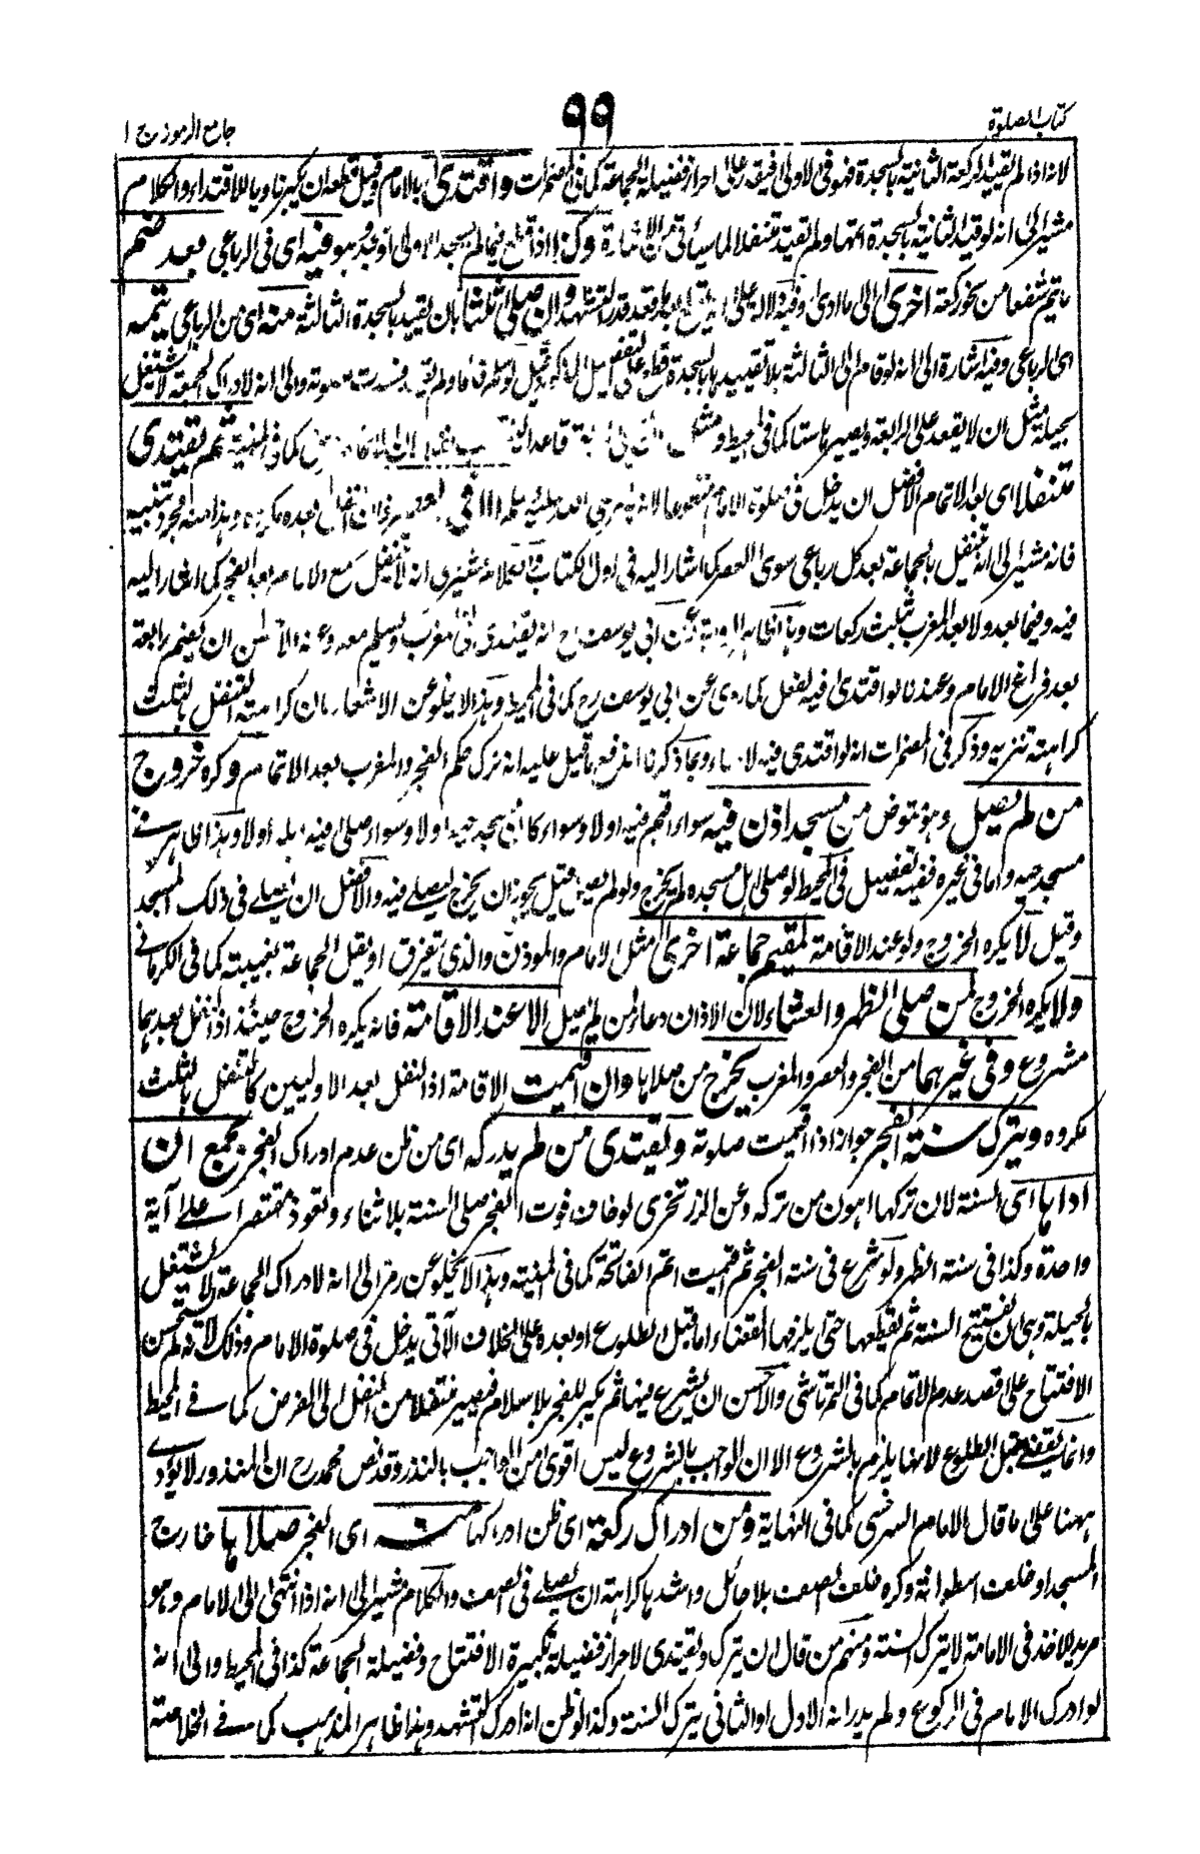 كتاب الصلوة
٩٩
جامع الرموز ج ١
لانه اذا لم يقيد الركعة الثانية بالسجدة فهو فى الاولى فيقدر على احراز فضيلة الجماعة كما فى المضمرات واقتدى بالامام وقيل قطعه ان يكبر ناويا للاقتداء والكلام
مشير الى انه لو قيد الثانية بالسجدة اتمها ولم يقتد متنفلا لما سيأتى من الاشارة وكذا اذا قطع فيما لم يسجد الاولى او قيد وهو فيه اى فى الرباعى بعد ضم
ما يتم شفعا من نحو ركعة اخرى الى ما ادى وفيه دلالة على انه يقطع بعد قدر التشهد وان صلى ثلثا بان يقيد بالسجدة الثالثة منه اى من الرباعى يتمه
اى الرباعى وفيه اشارة الى انه لو قام الى الثالثة بلا تقييدها بالسجدة قطع على التفصيل المذكور وقيل لو سلم قائما ولم فسدت صلوته والى انه لادراك الجمعة لا يشتغل
بحيلة مثل ان لا يقعد على الرابعة ويصير ستا كما فى المحيط ومثل قاعدا كما فى المنية ثم يقتدى
متنفلا اى بعد الاتمام الافضل ان يدخل فى صلوة الامام متطوعا لانه الا فى العصر فان التنفل بعده مكروه وهذا
فانه مشير الى انه يتنفل بالجماعة بعد كل رباعى سوى العصر كما اشار اليه فى اول الكتاب انه لا يتنفل مع الامام بعد الفجر كما اشار اليه
فيه وفيما بعده ولا بعد المغرب بثلث ركعات وعن ابى يوسف رح انه يقتدى فى المغرب ويسلم معه وعنه ان يضم رابعة
بعد فراغ الامام وعندنا لو اقتدى فيه لفعل كما روى عن ابى يوسف رح كما فى المحيط وهذا لا يخلو عن الاشعار بان كراهته التنفل بالثلث
كراهة تنزيه وذكر فى المضمرات انه لو اقتدى فيه لاساء ومما ذكرنا اندفع ما قيل عليه انه ترك حكم الفجر والمغرب بعد الاتمام وكره خروج
من لم يصل وهو متوض من مسجد اذن فيه سواء اقيم فيه اولا وسواء كان مسجد حيه اولا وسواء صلى فيه اهله اولا وهذا ظاهر فى
مسجد حيه واما فى غيره ففيه تفصيل فى المحيط لو صلى اهل مسجده لم يخرج ولو لم يصل قيل يجوز ان يخرج ليصلى فيه والافضل ان يصلى فى ذلك المسجد
وقيل لا يكره الخروج ولو عند الاقامة لمقيم جماعة اخرى مثل الامام والموذن والذى يتفرق او يقل الجماعة بغيبته كما فى الكرمانى
ولا يكره الخروج لمن صلى الظهر والعشاء لان الاذان دعاء لمن لم يصل الا عند الاقامة فانه يكره الخروج حينئذ اذ التنفل بعدهما
مشروع وفى غيرهما من الفجر والعصر والمغرب يخرج من صلاها وان اقيمت الاقامة اذ النفل بعد الاوليين كالتنفل بالثلث
مكروه ويترك سنة الفجر جوازا اذا اقيمت صلوته ويقتدى من لم يدركه اى من ظن عدم ادراك الفجر بجمع ان
اداها اى السنة لان تركها اهون من تركه وعن البزدوى لو خاف فوت الفجر صلى السنة بلا ثناء وتعوذ مقتصرا على آية
واحدة وكذا فى سنة الظهر ولو شرع فى سنة الفجر ثم اقيمت اتم الفاتحة كما فى المنية وهذا لا يخلو عن رمز الى انه لادراك الجماعة لا يشتغل
بالحيلة وهى ان يفتتح السنة ثم يقطعها حتى يلزمها القضاء اما قبل الطلوع او بعده على الخلاف الآتى يدخل فى صلوة الامام وذلك لانه لم يستحسن
الافتتاح على قصد عدم الاتمام كما فى التمرتاشى والاحسن ان يشرع فيها ثم يكبر للفجر بلا سلام فيصير منتقلا من النفل الى الفرض كما فى المحيط
وانما يقضى قبل الطلوع لانها يلزم بالشروع الا ان الواجب بالشروع ليس اقوى من الواجب بالنذر وقد نص محمد رح ان المنذور لا يؤدى
ههنا على ما قال الامام السرخسى كما فى النهاية ومن ادراك ركعة اى ظن ادراكها منه اى الفجر صلاها خارج
المسجد او خلف اسطوانة وكره خلف الصف بلا حائل واشدها كراهة ان يصلى فى الصف والكلام مشير الى انه اذا انتهى الى الامام وهو
مريد للاخذ فى الامامة لا يترك السنة ومنهم من قال ان يترك ويقتدى لاحراز فضيلة تكبيرة الافتتاح وفضيلة الجماعة كذا فى المحيط والى انه
لو ادرك الامام فى الركوع ولم يدر انه الاول او الثانى يترك السنة وكذا لو ظن انه ادرك التشهد وهذا ظاهر المذهب كما فى الخلاصة